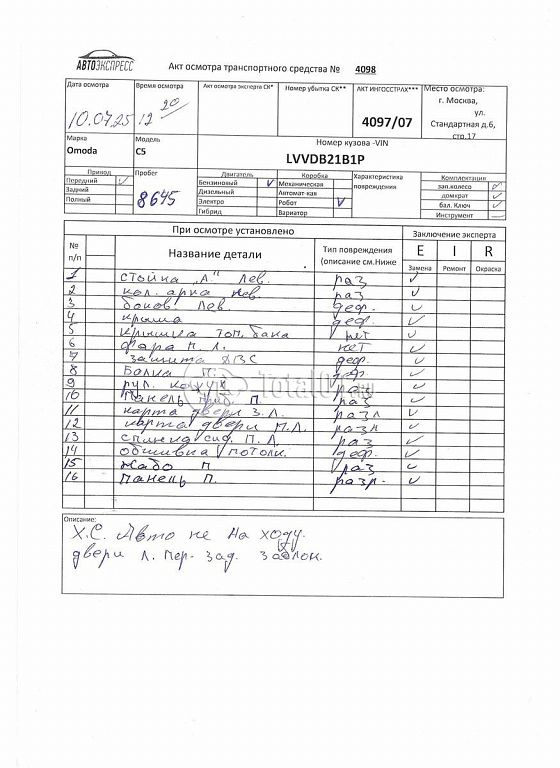 АВТОЭКСПРЕСС
Акт осмотра транспортного средства № 4098
Дата осмотра Время осмотра Акт осмотра эксперта СК* Номер убытка СК** АКТ ИНГОССТРАХ*** Место осмотра:
10.07.25 12 20 4097/07 г. Москва,
ул.
Стандартная д.6,
стр.17
Марка Модель Номер кузова -VIN
Omoda C5 LVVDB21B1P
Привод Пробег Двигатель Коробка Характеристика повреждения Комплектация
Передний 8645 Бензиновый Механическая зап.колесо
Задний Дизельный Автомат-кая домкрат
Полный Электро Робот бал. Ключ
Гибрид Вариатор Инструмент
При осмотре установлено Заключение эксперта
№ п/п Название детали Тип повреждения (описание см.Ниже E I R
Замена Ремонт Окраска
1 стойка "А" лев. раз
2 кол. арка лев. раз
3 боков. лев. деф.
4 крыша деф.
5 крышка топ. бака нет
6 фара п. л. нет
7 защита ДВС деф.
8 Балка п. деф.
9 рул. кожух раз
10 Панель приб. П. раз
11 карта двери З.Л. разл
12 карта двери П.Л. разл
13 раз
14 обшивка потолк. деф.
15 жабо п раз
16 панель п. разр.
TotalO1.ru
Описание:
Х.С. Авто не на ходу.
двери л. пер. зад. заблок.